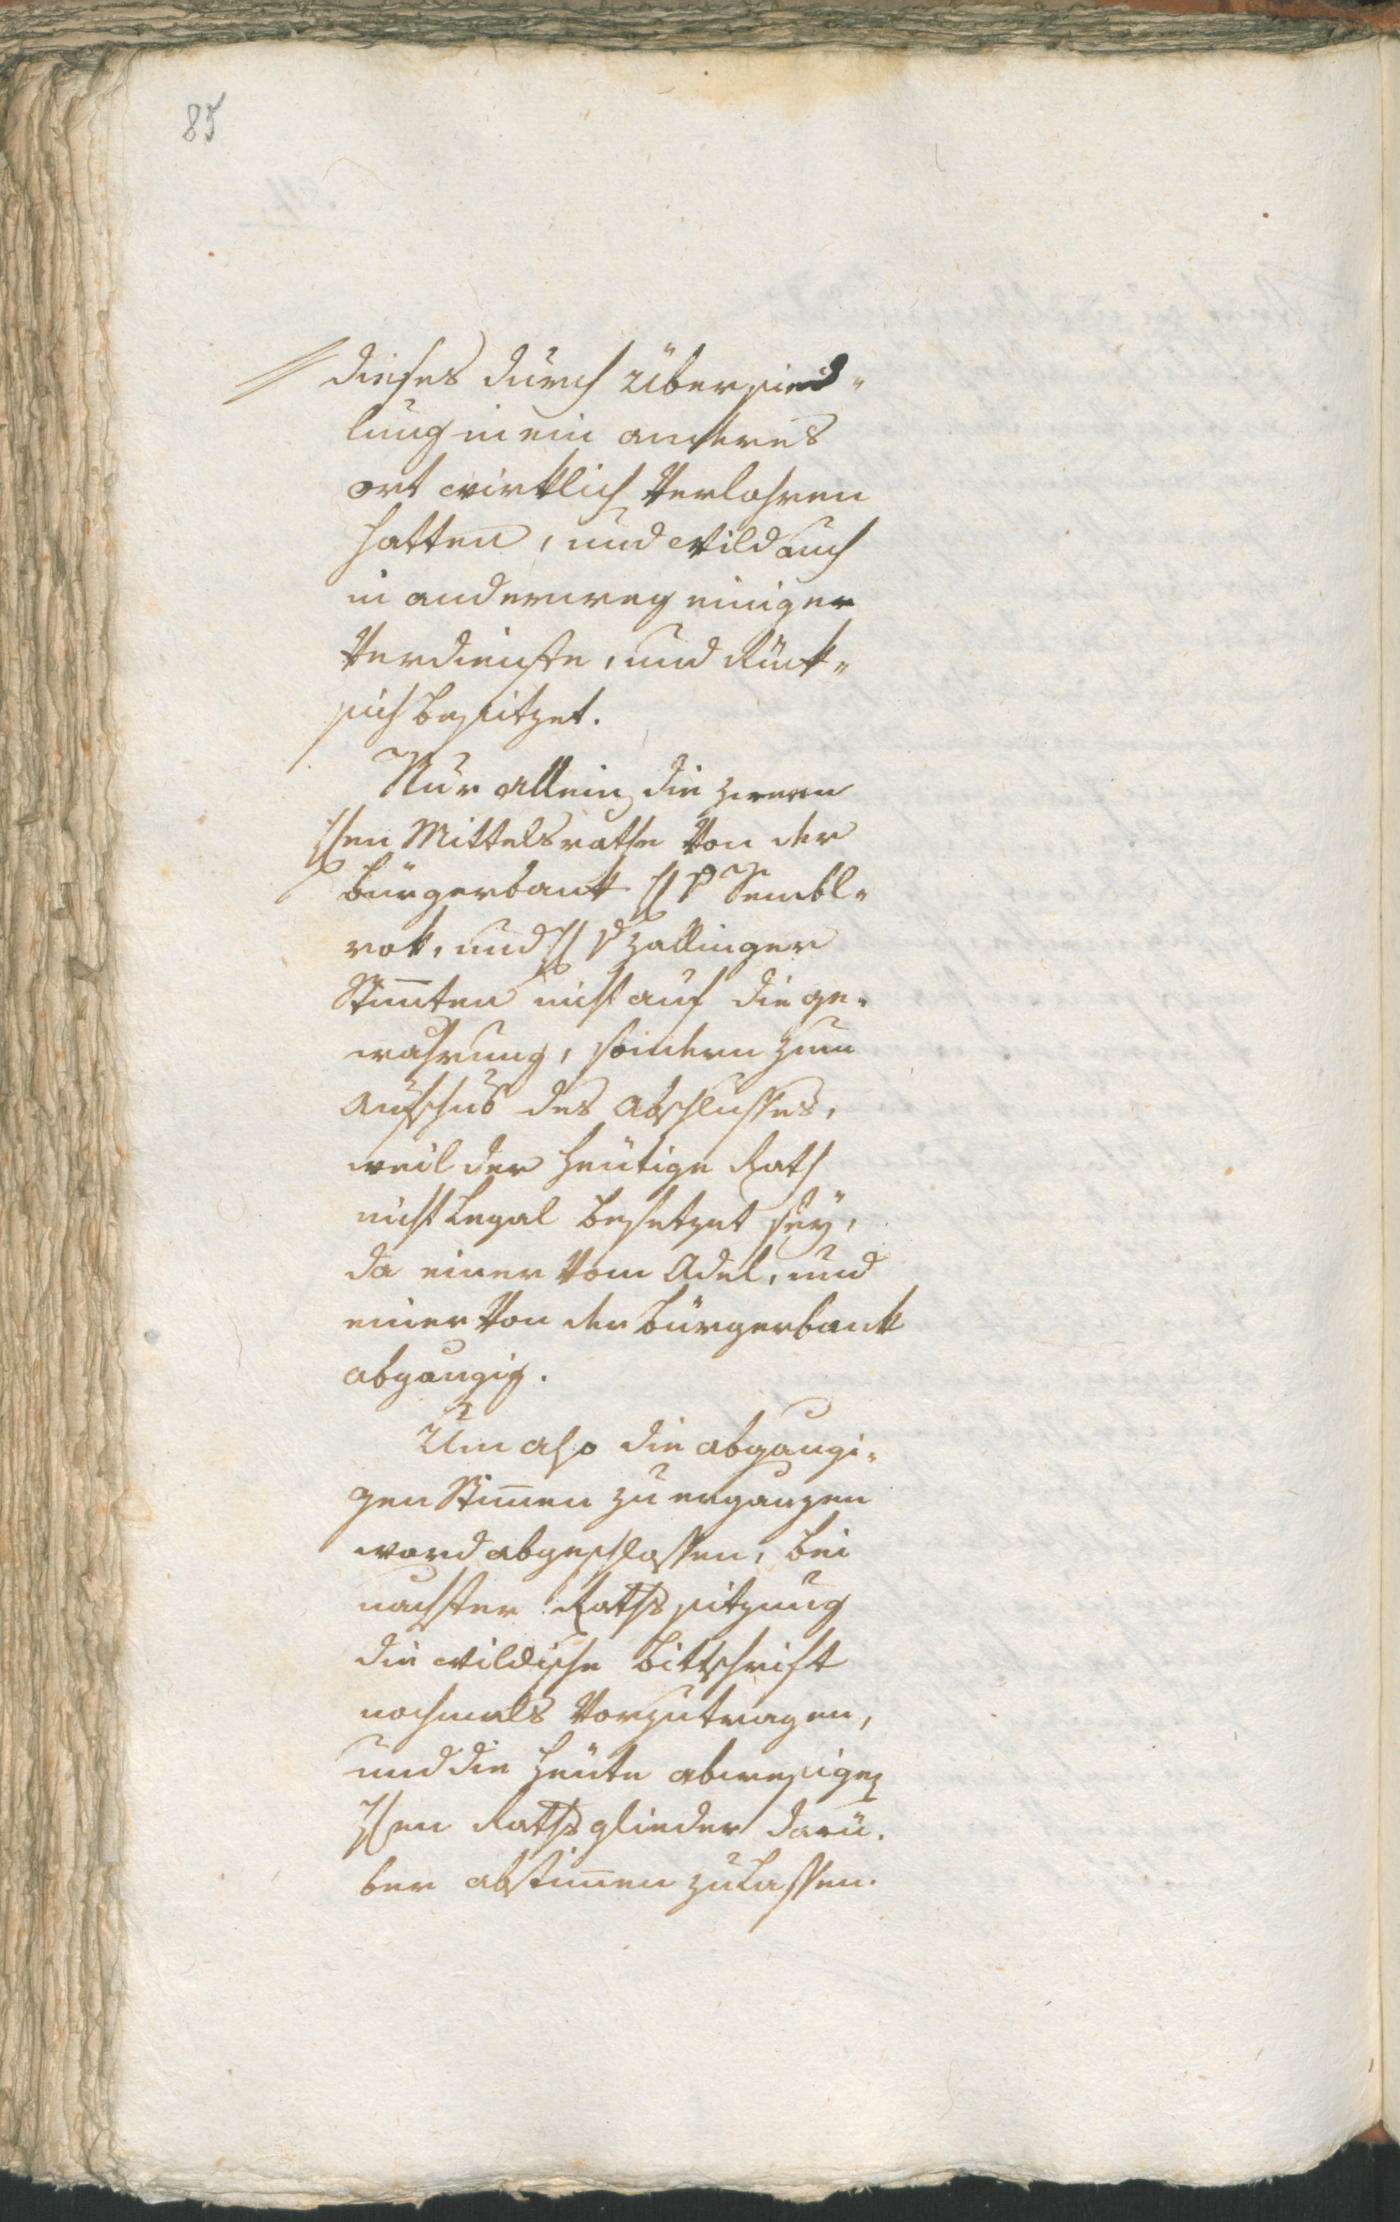 85
dieses durch Übersied„
lung in ein anderes
ort wirklich Verlohren
hatten, und Wild auch
in anderweg einiger
Verdienste, und Rück„
sich besitzet.
Nur allein die zween
Hen Mittelsrathe Von der
Bürgerbank H v Sembl„
rok, und H v Zallinger
Stim̅ten nicht auf die ge„
wahrung, sondern zum
Aufschub des Abschlusses,
weil der heutige Rath
nicht Legal besetzet seÿ,
da einer Vom Adel, und
einer Von der Bürgerbank
abgangig.
Um also die abgangi„
gen Stim̅en zu erganzen
ward abgeschlossen, bei
nachster Rathssitzung
die wildische Bittschrift
nochmals Vorzutragen,
und die heute abwesigen
Hen Rathsglieder darü„
ber abstim̅en zu Lassen.